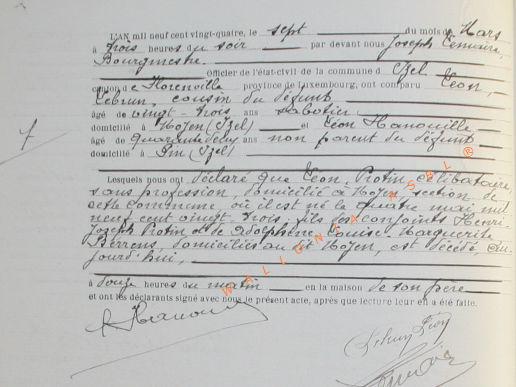 L'AN mil neuf cent vingt-quatre, le sept du mois de Mars
à trois heures du soir par devant nous Joseph Lemaire,
Bourgmestre
Officier de l'état-civil de la commune d'Izel
canton de Florenville province de Luxembourg, ont comparu Léon
Lebrun, cousin du défunt
âgé de vingt-trois ans sabotier
domicilié à Moyen (Izel) et Léon Hanouille
âgé de quarante deux ans non parent du défunt
domicilié à Pin (Izel)
Lesquels nous ont déclaré que Léon Protin, célibataire,
sans profession, domicilié à Moyen, section de
cette commune, où il est né le quatre mai mil
neuf cent vingt-trois, fils des conjoints Henri-
Joseph Protin et de Adolphine Louise Marguerite
Berrens, domiciliés au dit Moyen, est décédé, au-
jourd'hui,
à douze heures du matin en la maison de son père
et ont les déclarants signé avec nous le présent acte, après que lecture leur en a été faite.
Lebrun Léon
WALLONIA ASBL ®
7